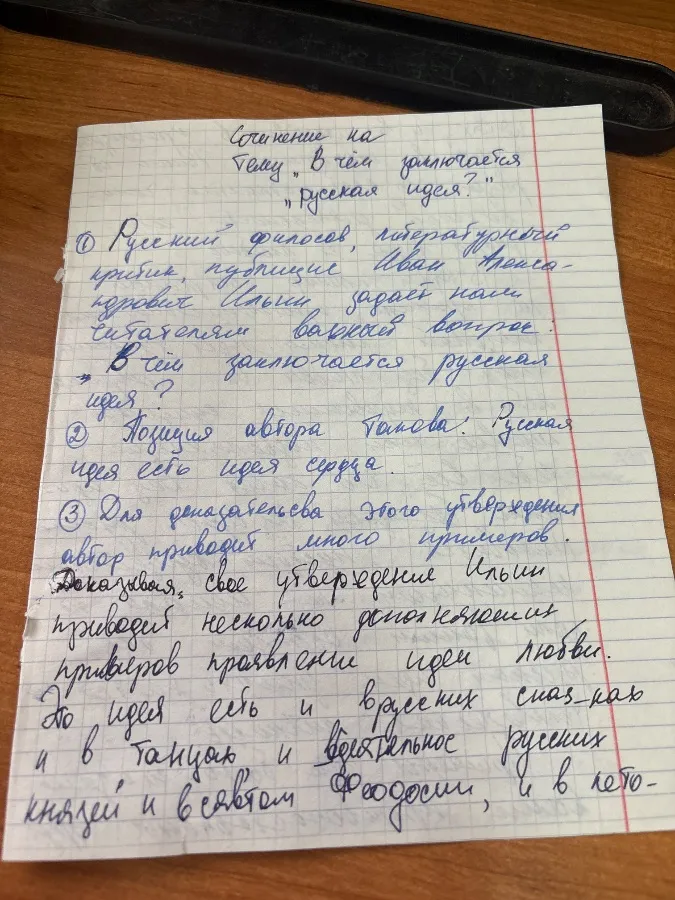 Сочинение на
тему „В чём заключается
„русская идея?"
① Русский философ, литературный
критик, публицис Иван Алекса-
ндрович Ильин задаёт нам
читателям важный вопрос:
„В чём заключается русская
идея?
② Позиция автора такова: Русская
идея есть идея сердца.
③ Для доказательсва этого утверждения
автор приводит много примеров.
Доказывая, свое утверждение Ильин
приводит несколько дополняющих
примеров проявление идеи любви.
Это идея есть и врусских сказ-ках
и в танцах и вдеятельнос русских
князей и в святом Феодосии, и в лето-